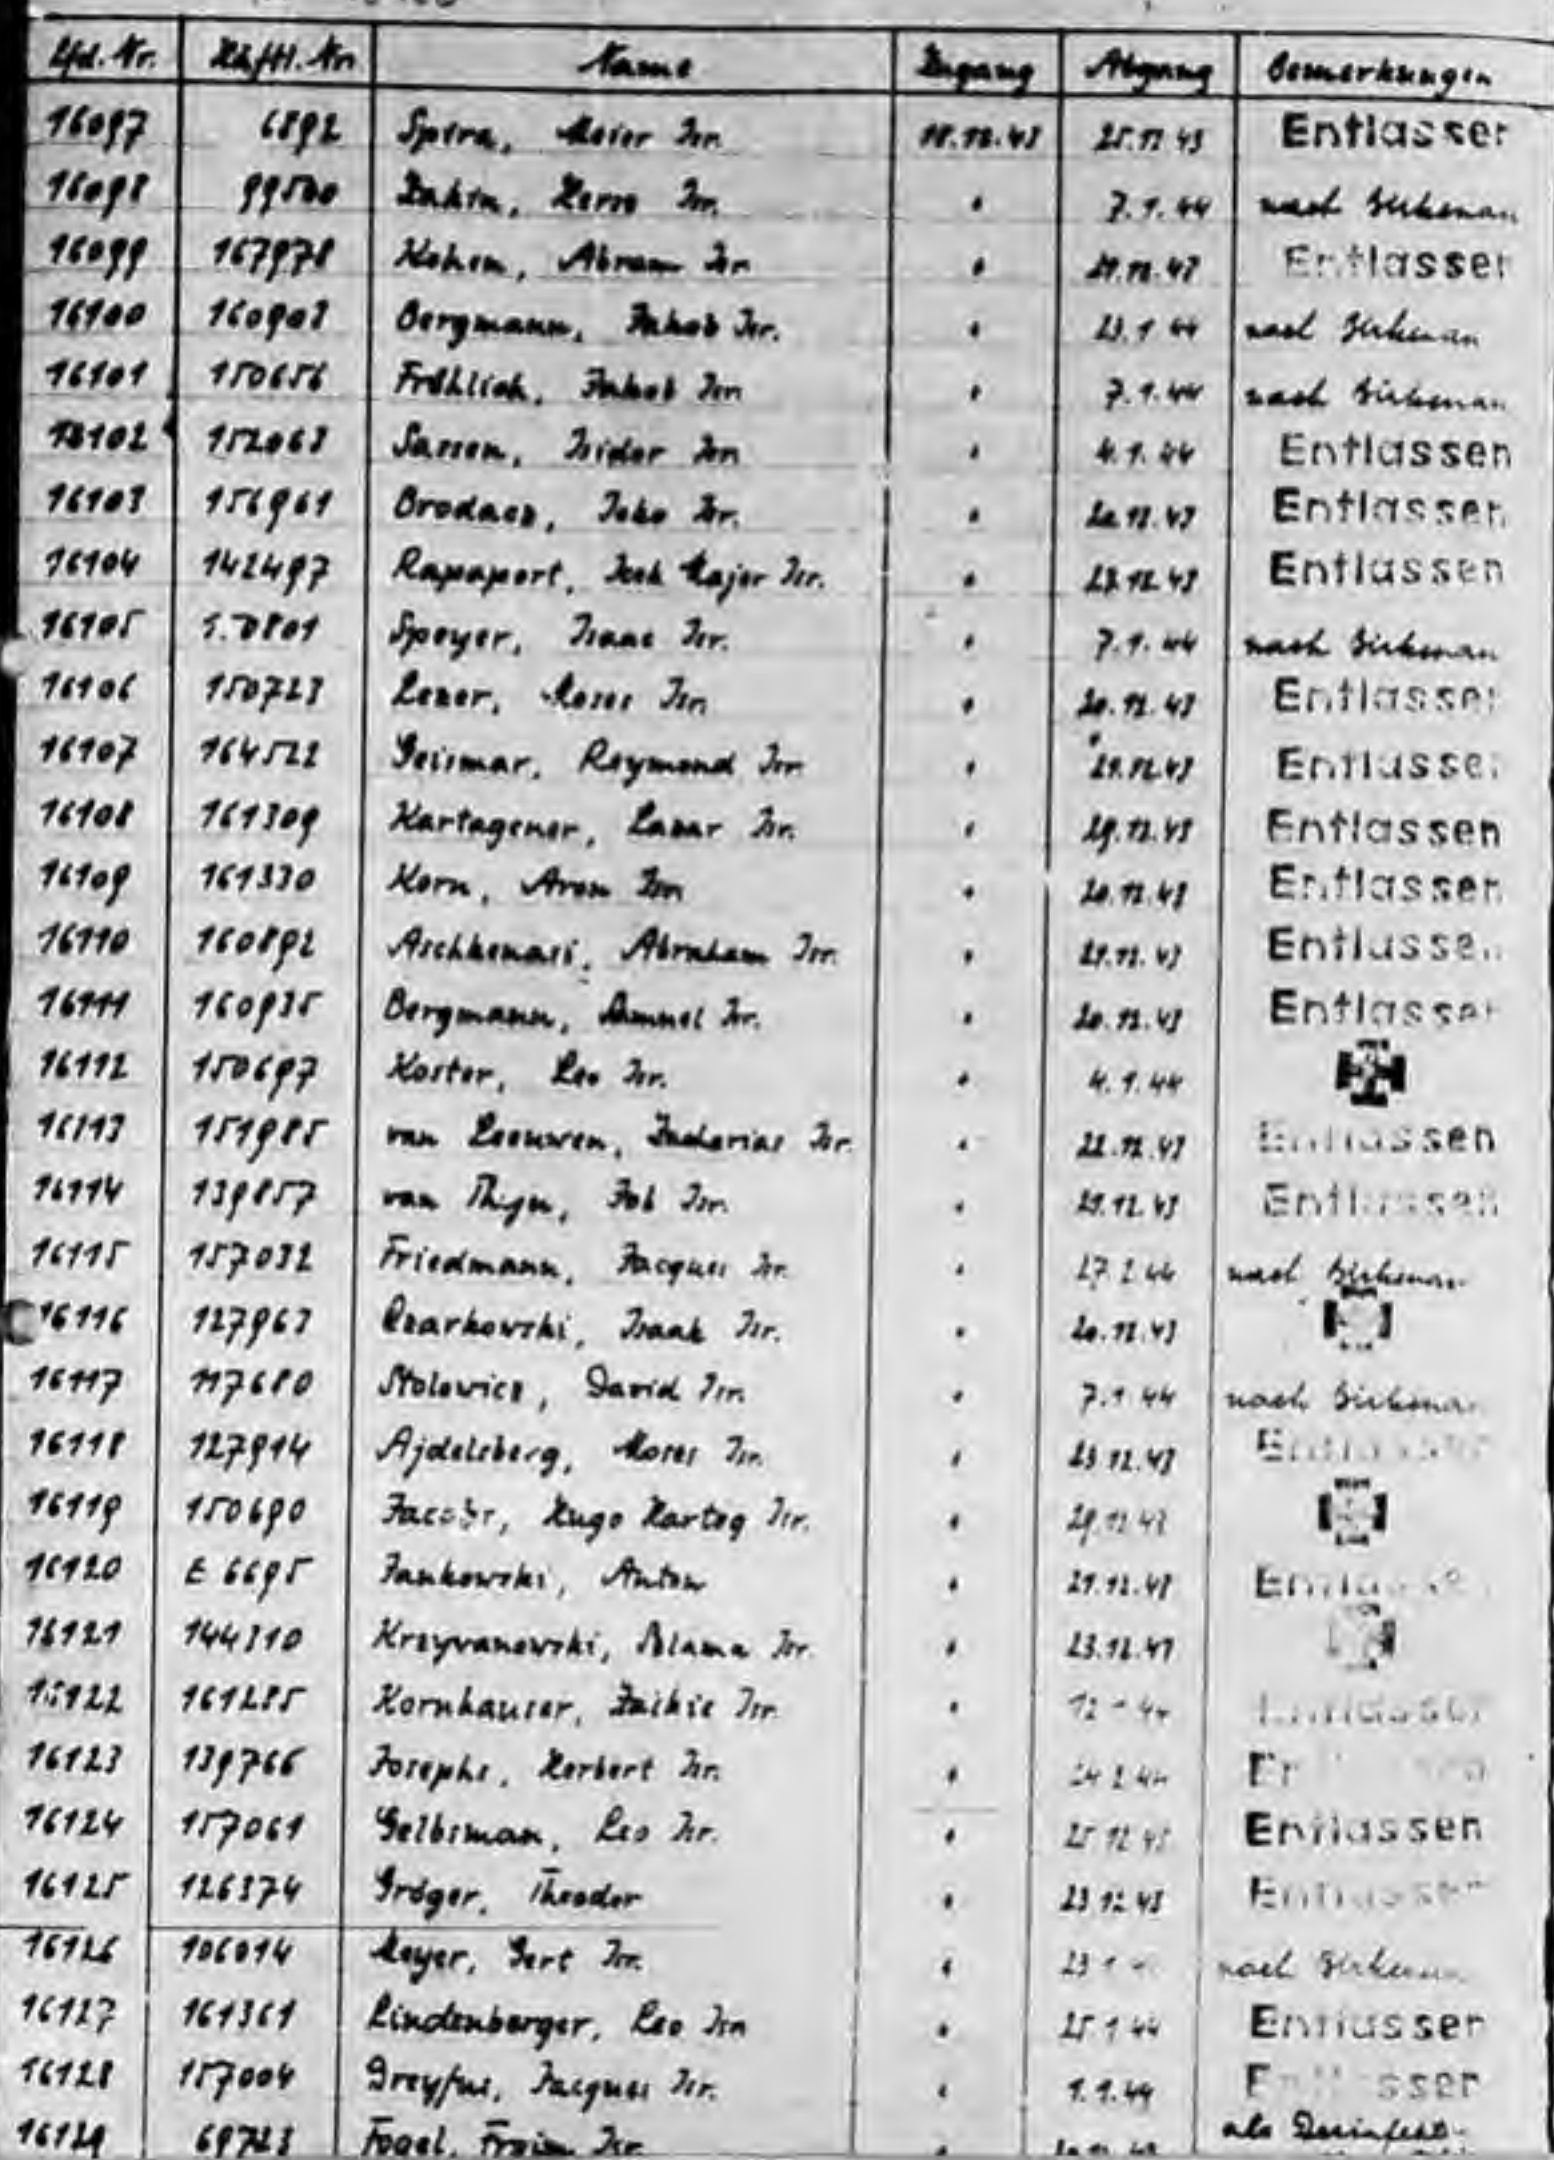 Lfd. Nr. Häftl. Nr. Name Zugang Abgang Bemerkungen
16097 6892 Spira, Meier Isr. 18.12.43 25.12.43 Entlassen
16098 99500 7.1.44 nach Birkenau
16099 167978 Kohen, Abram Isr. Entlassen
16100 160903 Bergmann, Jakob Isr. 23.1.44 nach Birkenau
16101 150656 Fröhlich, Jakob Isr. 7.1.44 nach Birkenau
16102 152063 Sassen, Isidor Isr. 4.1.44 Entlassen
16103 156961 Brodacz, Isr. 20.12.43 Entlassen
16104 142497 Rapaport, Majer Isr. 23.12.43 Entlassen
16105 Speyer, Isaac Isr. 7.1.44 nach Birkenau
16106 150723 Lezer, Moses Isr. 20.12.43 Entlassen
16107 164522 Geismar, Reymond Isr. 21.12.43 Entlassen
16108 161309 Kartagener, Lazar Isr. 29.12.43 Entlassen
16109 161330 Korn, Aron Isr. 20.12.43 Entlassen
16110 160892 Aschkenasi, Abraham Isr. 21.12.43 Entlassen
16111 160935 Bergmann, Samuel Isr. 20.12.43 Entlassen
16112 150697 Koster, Leo Isr. 4.1.44
16113 151985 van Leeuwen, Zacharias Isr. 22.12.43 Entlassen
16114 139857 van Thijn, Job Isr. 21.12.43 Entlassen
16115 157032 Friedmann, Jacques Isr. 27.2.44 nach Birkenau
16116 127963 Czarkowski, Isaak Isr. 20.12.43
16117 117680 Stolowicz, David Isr. 7.1.44 nach Birkenau
16118 127914 Ajdelsberg, Moses Isr. 23.12.43 Entlassen
16119 150690 Jacobs, Hugo Hartog Isr. 29.12.43
16120 E 6695 Jankowski, Anton 21.12.43 Entlassen
16121 144310 Krzyvanowski, Szlama Isr. 23.12.43
16122 161285 Kornhauser, Isr. Entlassen
16123 139766 Josephs, Herbert Isr. 24.2.44
16124 157061 Gelbsman, Leo Isr. 25.12.43 Entlassen
16125 126374 Gröger, Theodor 23.12.43 Entlassen
16126 106014 Meyer, Gert Isr. nach Birkenau
16127 161361 Lindenberger, Leo Isr. 25.1.44 Entlassen
16128 157004 Dreyfus, Jacques Isr. 1.1.44 Entlassen
16129 69723 Fogel, Froim Isr. als Desinfekt-